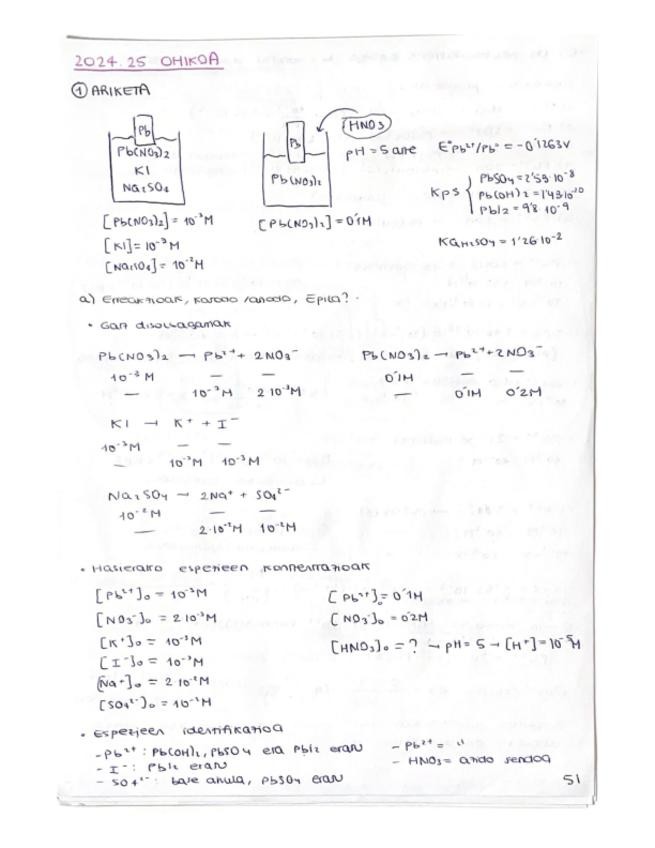 2024.25 OHIKOA
① ARIKETA
Pb
Pb(NO3)2
KI
Na2SO4
Pb
Pb(NO3)2
HNO3
pH = 5 arte
E°Pb²⁺/Pb° = -0'1263V
Kps { PbSO4 = 2'53·10⁻⁸
Pb(OH)2 = 1'43·10⁻²⁰
PbI2 = 9'8·10⁻⁹
[Pb(NO3)2] = 10⁻³M
[Pb(NO3)2] = 0'1M
[KI] = 10⁻³M
[Na2SO4] = 10⁻²M
KaH2SO4 = 1'26·10⁻²
a) Erreakzioak, katodo/anodo, Epila?
• Gatz disolbagarriak
Pb(NO3)2 → Pb²⁺ + 2NO3⁻
10⁻³M — —
— 10⁻³M 2·10⁻³M
Pb(NO3)2 → Pb²⁺ + 2NO3⁻
0'1M — —
— 0'1M 0'2M
KI → K⁺ + I⁻
10⁻³M — —
— 10⁻³M 10⁻³M
Na2SO4 → 2Na⁺ + SO4²⁻
10⁻²M — —
— 2·10⁻²M 10⁻²M
• Hasierako espezieen kontzentrazioak
[Pb²⁺]₀ = 10⁻³M
[NO3⁻]₀ = 2·10⁻³M
[K⁺]₀ = 10⁻³M
[I⁻]₀ = 10⁻³M
[Na⁺]₀ = 2·10⁻²M
[SO4²⁻]₀ = 10⁻²M
[Pb²⁺]₀ = 0'1M
[NO3⁻]₀ = 0'2M
[HNO3]₀ = ? → pH = 5 → [H⁺] = 10⁻⁵M
• Espezieen identifikazioa
- Pb²⁺: Pb(OH)2, PbSO4 eta PbI2 eran
- I⁻: PbI2 eran
- SO4²⁻: base ahula, PbSO4 eran
- Pb²⁺ = "
- HNO3 = azido sendoa
51